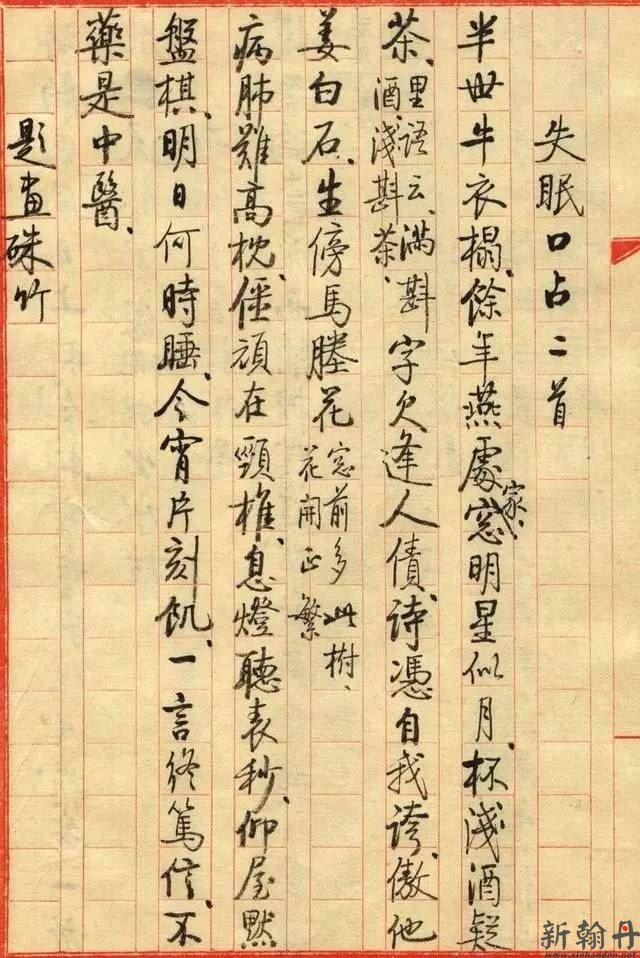 失眠口占二首
半世牛衣榻、餘年燕處家、窓明星似月、杯淺酒疑
茶、里語云、滿斟酒、淺斟茶、字欠逢人債、詩憑自我誇、傲他
姜白石、生傍馬塍花窓前多此樹、花開正繁
病肺難高枕、僵頑在頸椎、息燈聽表秒、仰屋默
盤棋、明日何時睡、今宵片刻飢、一言終篤信、不
藥是中醫、
題畫硃竹
新翰丹
www.xinhandan.net